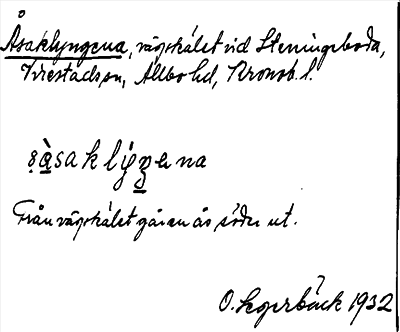 Åsaklyngena, vägskälet vid Steningeboda,
Virestads sn, Allbo hd, Kronob. l.
Från vägskälet går en ås söder ut.
O. Segerbäck 1932